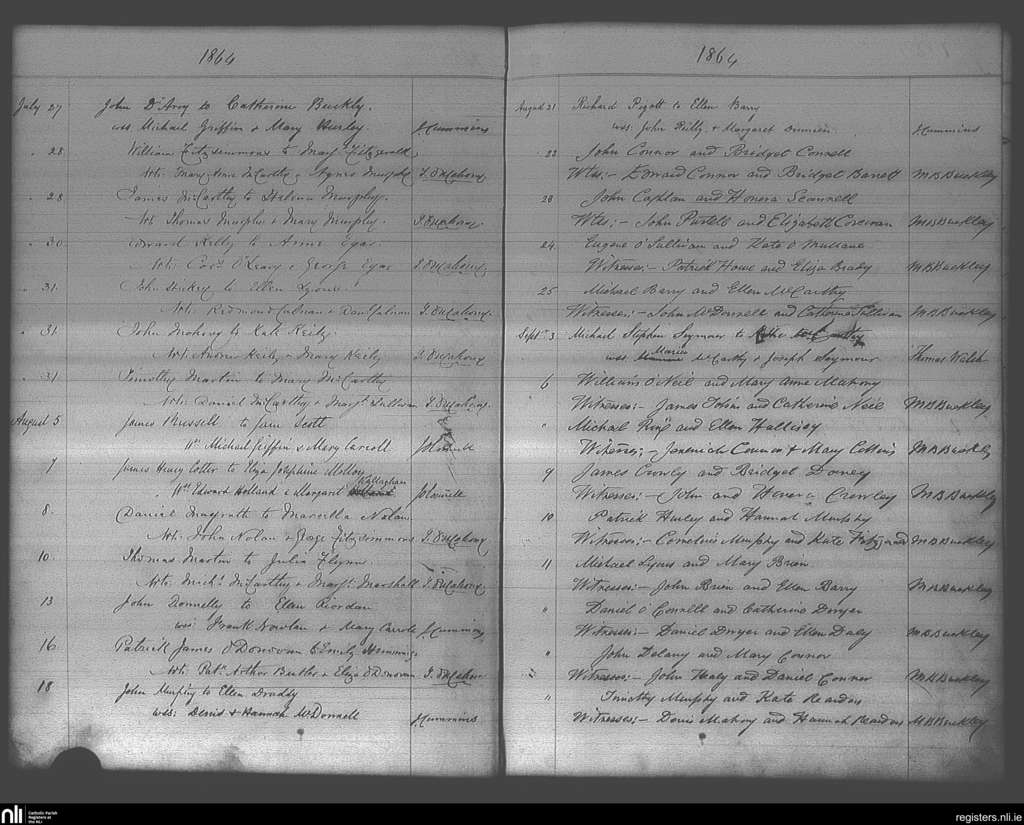 1864
July 27 John D'Arcy to Catherine Buckly.
wss. Michael Griffin & Mary Hurley. J Cummins
" 28 William Fitzsimmons to Mary Fitzgerald
Wts. Mary Anne McCarthy & Agnes Murphy T. O'Mahony
" 28 James McCarthy to Helena Murphy.
Wts Thomas Murphy & Mary Murphy. T. O'Mahony
" 30 Edward Kelly to Anne Egar.
Wts. O'Leary & George Egar T. O'Mahony.
" 31. John Hickey to Ellen Lyons.
Wts. Redmond & T. O'Mahony.
" 31 John Mahony to Kate Reily.
Wts. Andrew Reily & Mary Reily T. O'Mahony
" 31 Timothy Martin to Mary McCarthy
Wts. Daniel McCarthy & Margt. Sullivan T. O'Mahony.
August 5 James Russell to Jane Scott
Wss Michael Griffin & Mary Carroll
7 James Henry Cotter to Eliza Josephine
Wss Edward Holland & Margaret Callaghan
8. Daniel Magrath to Marcella Nolan.
Wts. John Nolan & George Fitzsimmons T. O'Mahony
10. Thomas Martin to Julia Flynn.
Wts. Michl. McCarthy & Margt. Marshall T. O'Mahony
13 John Donnelly to Ellen Riordan
wss: Frank Nowlan & Mary Carroll J Cummins
16 Patrick James O'Donovan & Emily
Wts. Patk. Arthur Butler & Eliza O'Donovan T. O'Mahony
18 John Murphy to Ellen
wss: Denis & Hannah McDonnell J Cummins
1864
August 21 Richard Pigott to Ellen Barry
wss: John Reilly & Margaret J Cummins
22 John Connor and Bridget Connell
Wtss:- Edward Connor and Bridget Barrett M B Buckley
23 John Caplan and Honora Scannell
Wtss:- John Purtell and Elizabeth Corcoran M B Buckley
24. Eugene O'Sullivan and Kate O'Mullane
Witnesses:- Patrick Howe and Eliza Brady M B Buckley
25 Michael Barry and Ellen McCarthy
Witnesses:- John McDonnell and Catherine Sullivan M B Buckley
Septr. 3 Michael Stephen Seymour to
wss. Maria McCarthy & Joseph Seymour Thomas Walsh
6 William O'Neil and Mary Anne Mahony
Witnesses:- James Tobin and Catherine Neil M B Buckley
" Michael Ring and Ellen Hallisey
Witnesses;- Jeremiah Connor & Mary Collins M B Buckley
9 James Crowly and Bridget
Witnesses:- John and Honora Crowley M B Buckley
10 Patrick Hurley and Hannah Murphy
Witnesses:- Cornelius Murphy and Kate Fitzgerald M B Buckley
11 Michael Lyons and Mary Brien
Witnesses:- John Brien and Ellen Barry M B Buckley
" Daniel O'Connell and Catherine Dwyer
Witnesses:- Daniel Dwyer and Ellen Daly M B Buckley
" John Delany and Mary Connor
Witnesses:- John Healy and Daniel Connor M B Buckley
" Timothy Murphy and Kate Reardon
Witnesses:- Denis Mahony and Hannah Reardon M B Buckley
nli Catholic Parish Registers at the NLI
registers.nli.ie